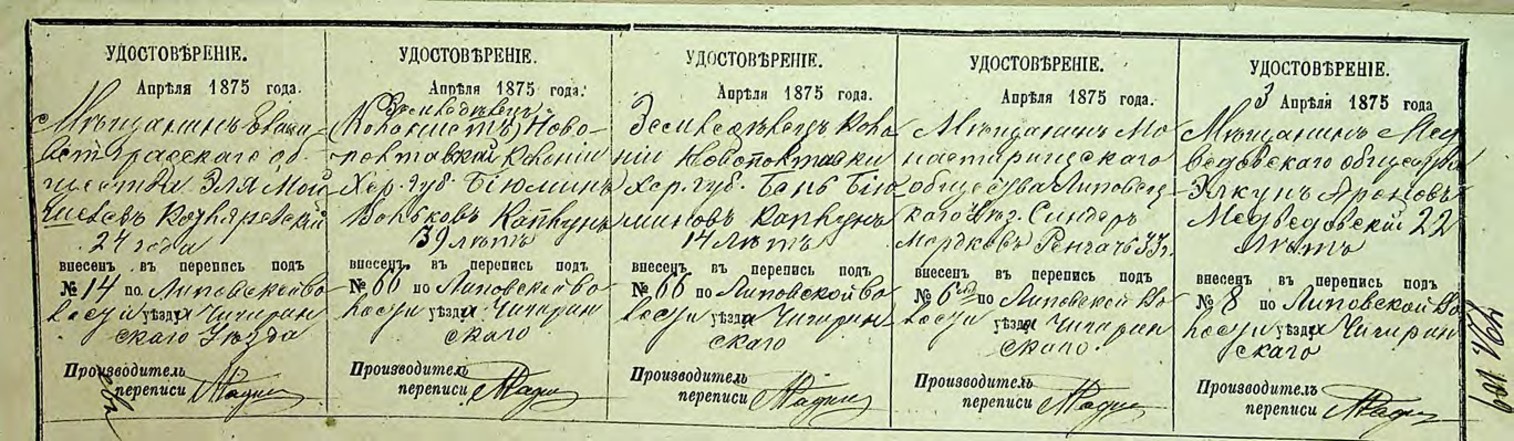 УДОСТОВѢРЕНІЕ.
Апрѣля 1875 года.
Мѣщанинъ
общества Эля Мой
шевъ
24 года
внесенъ въ перепись подъ
№ 14 по Липовской во
лости уѣзда Чигирин
скаго Уѣзда
Производитель
переписи
УДОСТОВѢРЕНІЕ.
Апрѣля 1875 года.
Земледѣлецъ
Колонистъ Ново-
полтавской Колоніи
Хер. губ. Бѣюминъ
Вольковъ Каплунъ
39 лѣтъ
внесенъ въ перепись подъ
№ 66 по Липовской во
лости уѣзда Чигирин
скаго
Производитель
переписи
УДОСТОВѢРЕНІЕ.
Апрѣля 1875 года.
Земледѣлецъ Коло
ніи Новополтавки
Хер. губ. Бень Бію
миновъ Каплунъ
14 лѣтъ
внесенъ въ перепись подъ
№ 66 по Липовской во
лости уѣзда Чигирин
скаго
Производитель
переписи
УДОСТОВѢРЕНІЕ.
Апрѣля 1875 года.
Мѣщанинъ Мо
настырищскаго
общества Липовец
каго Уѣз. Синдеръ
Мордковъ 33 г.
внесенъ въ перепись подъ
№ 6 по Липовской Во
лости уѣзда Чигирин
скаго.
Производитель
переписи
УДОСТОВѢРЕНІЕ.
3 Апрѣля 1875 года
Мѣщанинъ Мед
ведовскаго общества
Элкунъ Ароновъ
Медведовскій 22
лѣтъ
внесенъ въ перепись подъ
№ 8 по Липовской Во
лости уѣзда Чигирин
скаго
Производитель
переписи